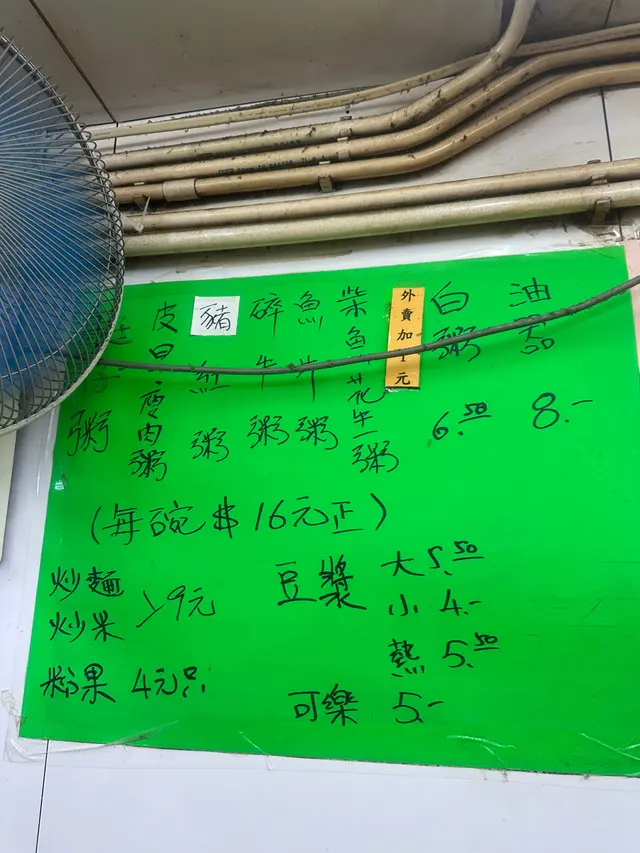 粥
皮旦瘦肉粥
豬紅粥
碎牛粥
魚片粥
柴魚花生粥
外賣加1元
白粥 6.50
油器 8.-
(每碗$16元正)
炒麵
炒米 >9元
粉果 4元只
豆漿 大 5.50
小 4.-
熱 5.50
可樂 5.-